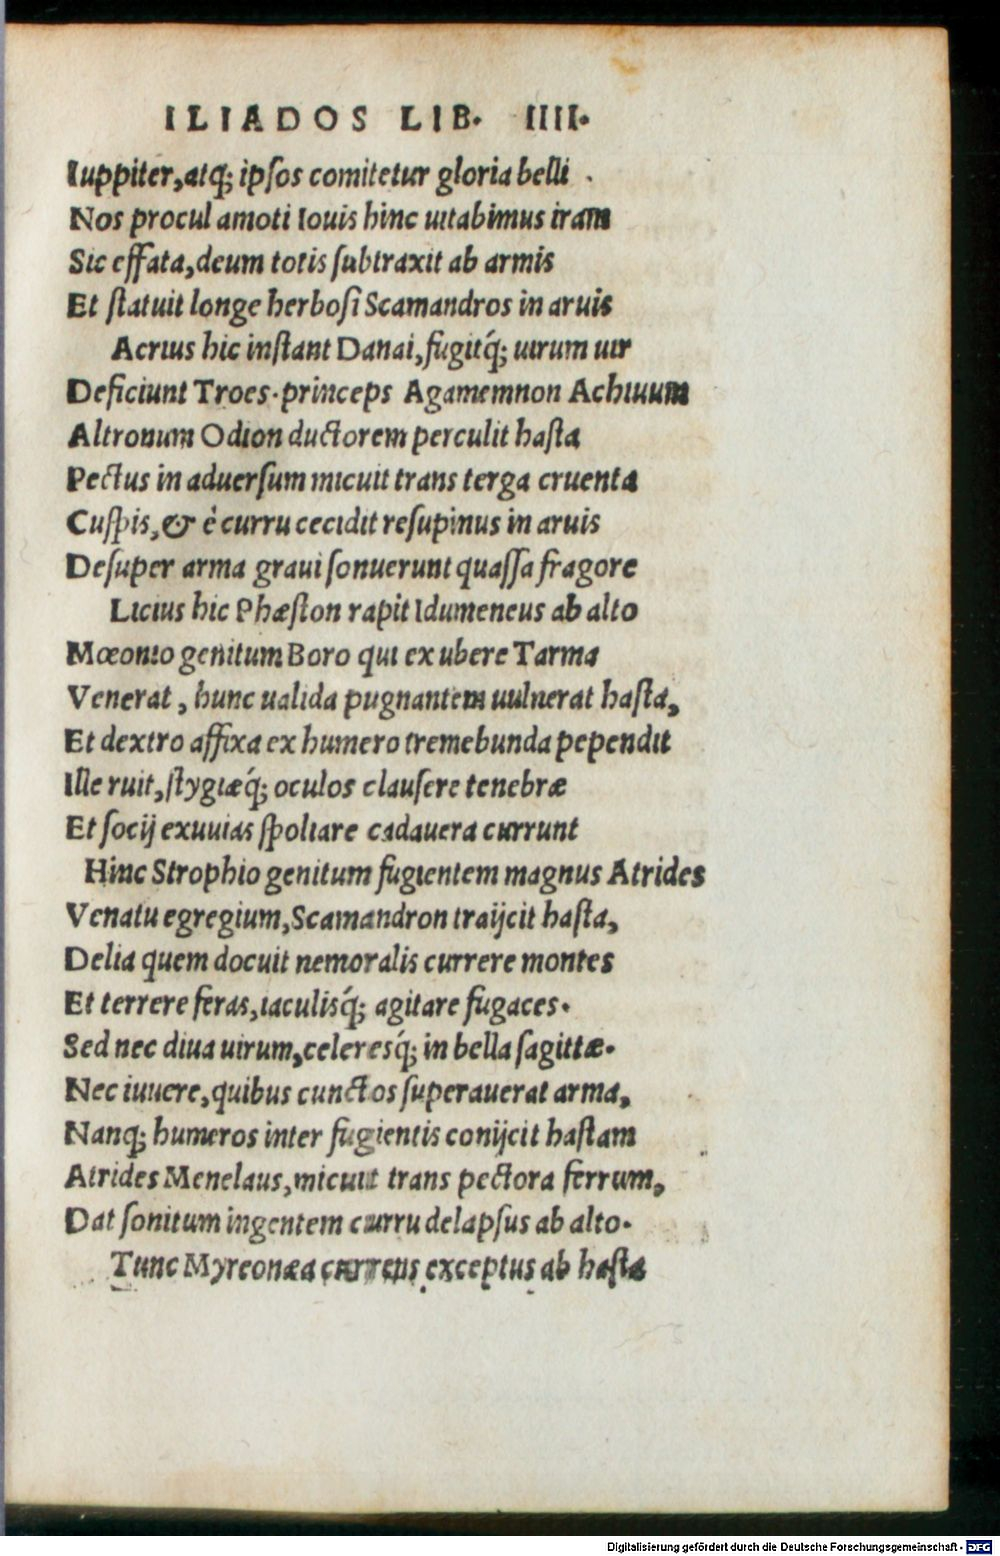 ILIADOS LIB. IIII.
Iuppiter, atq; ipſos comitetur gloria belli .
Nos procul amoti Iouis hinc uitabimus iram
Sic effata, deum totis ſubtraxit ab armis
Et ſtatuit longe herboſi Scamandros in aruis
Acrius hic inſtant Danai, fugitq́; uirum uir
Deficiunt Troes. princeps Agamemnon Achiuum
Altronum Odion ductorem perculit haſta
Pectus in aduerſum micuit trans terga cruenta
Cuſpis, & è curru cecidit reſupinus in aruis
Deſuper arma graui ſonuerunt quaſſa fragore
Licius hic Phæſton rapit Idumeneus ab alto
Mœonio genitum Boro qui ex ubere Tarma
Venerat , hunc ualida pugnantem uulnerat haſta,
Et dextro affixa ex humero tremebunda pependit
Ille ruit, ſtygiæq́; oculos clauſere tenebræ
Et ſocij exuuias ſpoliare cadauera currunt
Hinc Strophio genitum fugientem magnus Atrides
Venatu egregium, Scamandron traijcit haſta,
Delia quem docuit nemoralis currere montes
Et terrere feras, iaculisq́; agitare fugaces.
Sed nec diua uirum, celeresq́; in bella ſagittæ.
Nec iuuere, quibus cunctos ſuperauerat arma,
Nanq; humeros inter fugientis conijcit haſtam
Atrides Menelaus, micuit trans pectora ferrum,
Dat ſonitum ingentem curru delapſus ab alto.
Tunc Myreonæa currens exceptus ab haſta
Digitalisierung gefördert durch die Deutsche Forschungsgemeinschaft - DFG